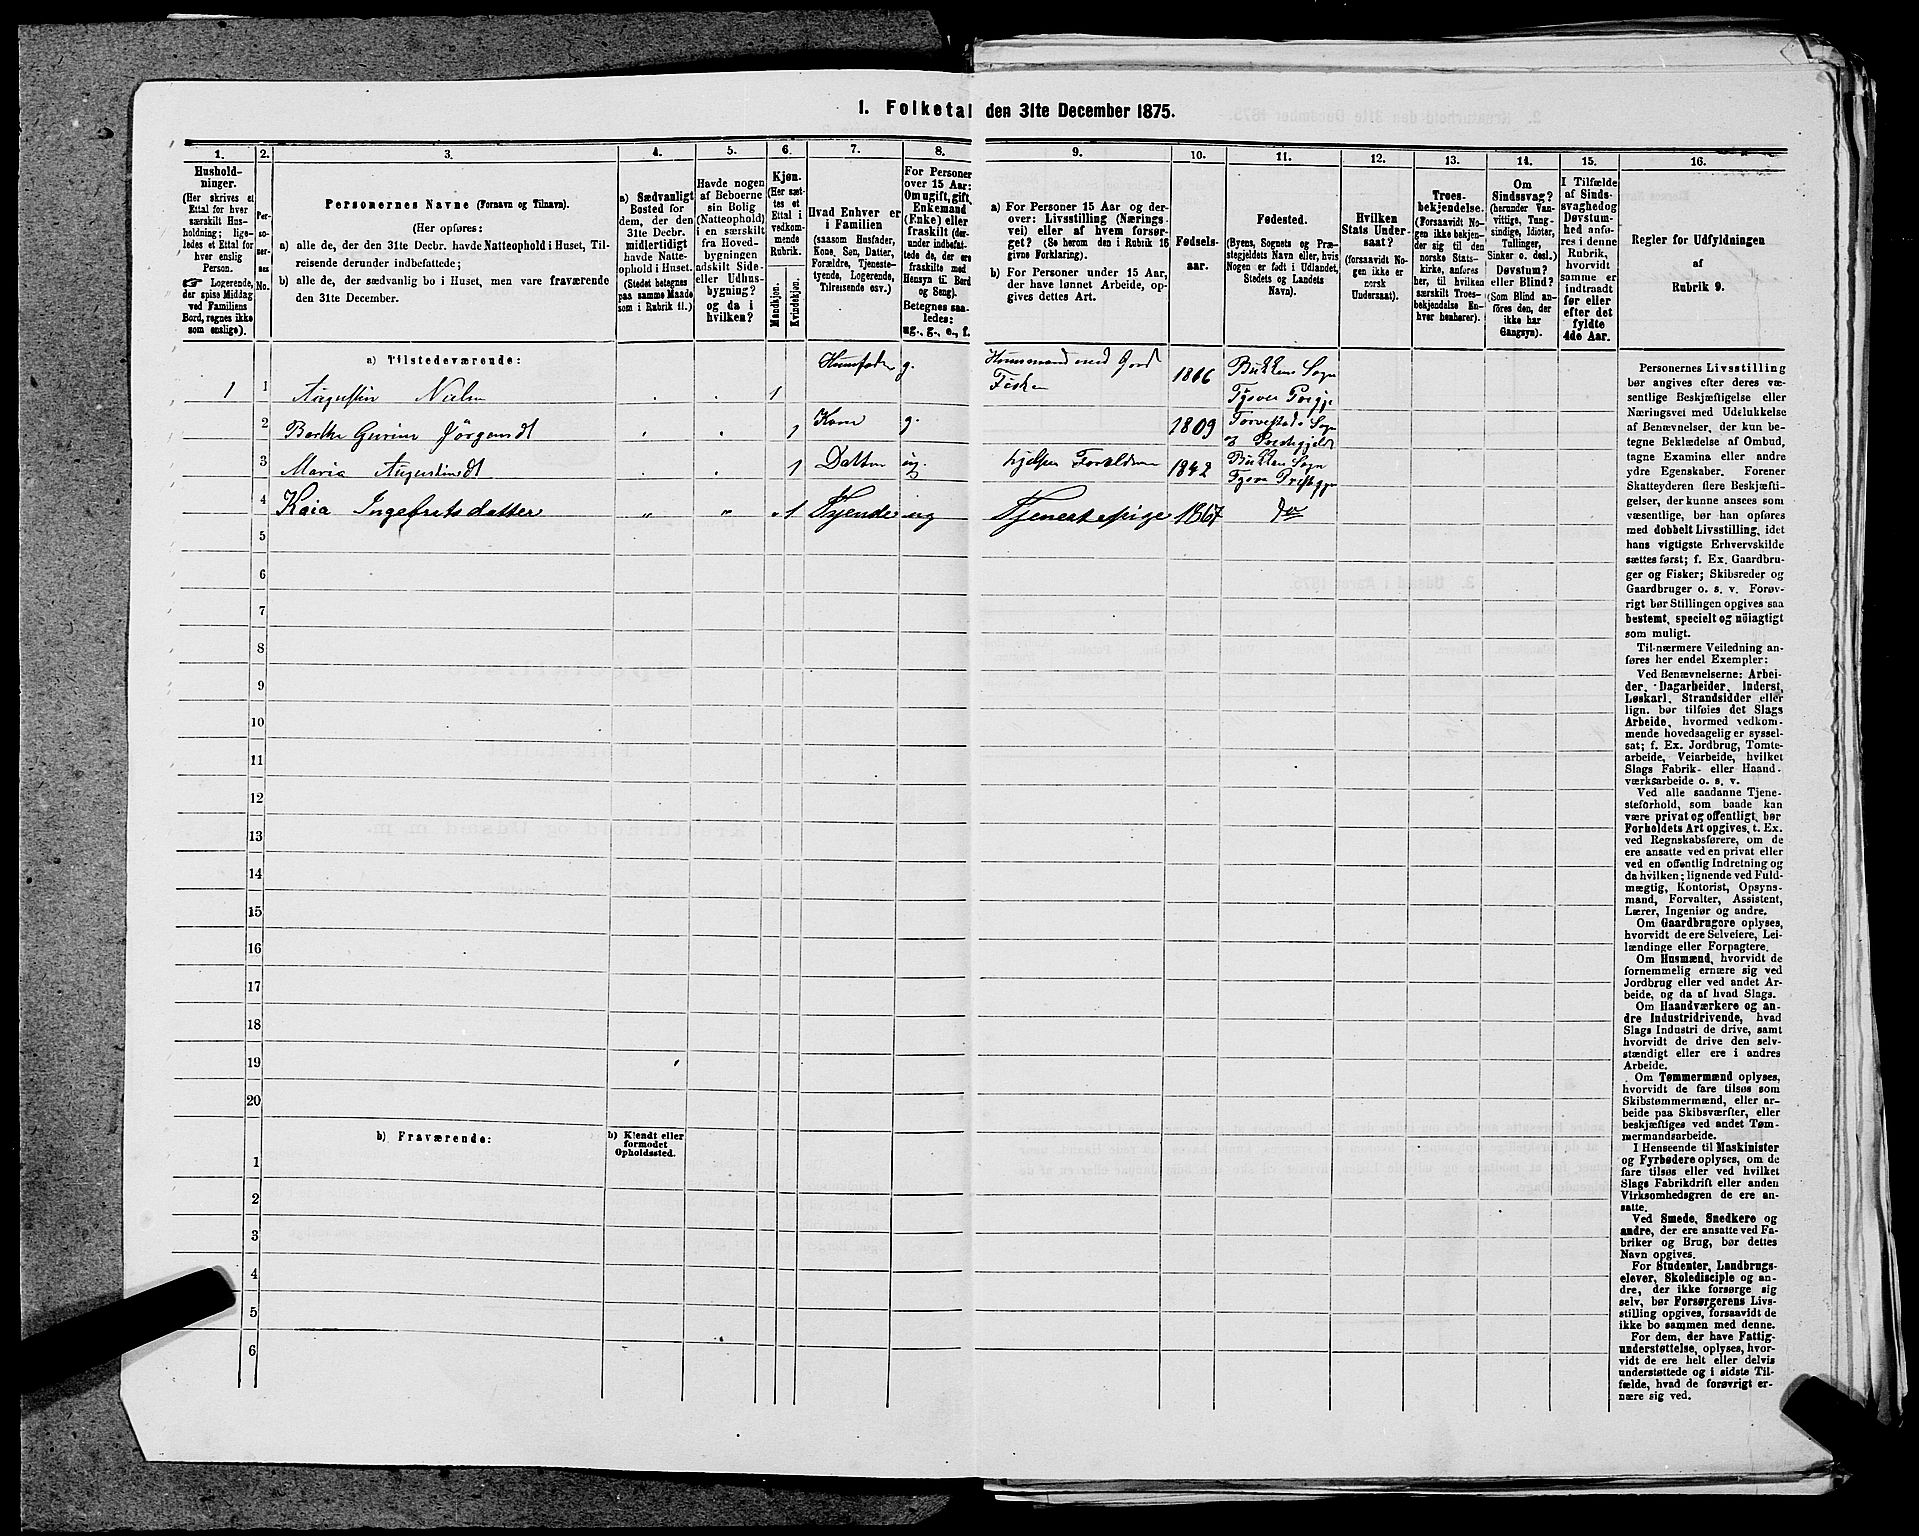 1. Folketal den 31te December 1875.
1. 2. 3. 4. 5. 6. 7. 8. 9. 10. 11. 12. 13. 14. 15. 16.
Hushold-
ninger.
(Her skrives et
Ettal for hver
særskilt Hus-
holdning; lige-
ledes et Ettal for
hver enslig
Person.
☛ Logerende,
der spise Middag
ved Familiens
Bord, regnes ikke
som enslige).
Per-
so-
ner-
nes
No.
Personernes Navne (Fornavn og Tilnavn).
(Her opføres:
a) alle de, der den 31te Decbr. havde Natteophold i Huset, Til-
reisende derunder indbefattede;
b) alle de, der sædvanlig bo i Huset, men vare fraværende
den 31te December.
a) Sædvanligt
Bosted for
dem, der den
31te Decbr.
midlertidigt
havde Natte-
ophold i Huset.
(Stedet betegnes
paa samme Maade
som i Rubrik 11.)
Havde nogen
af Beboerne
sin Bolig
(Natteophold)
i en særskilt
fra Hoved-
bygningen
adskilt Side-
eller Udhus-
bygning?
og da i
hvilken?
Kjøn.
(Her sæt-
tes et
Ettal i
vedkom-
mende
Rubrik.
Mandkjøn.
Kvindekjøn.
Hvad Enhver er
i Familien
(saasom Husfader,
Kone, Søn, Datter,
Forældre, Tjeneste-
tyende, Logerende,
Tilreisende osv.)
For Personer
over 15 Aar:
Om ugift, gift,
Enkemand
(Enke) eller
fraskilt (der-
under indbefat-
tede de, der ere
fraskilte med
Hensyn til Bord
og Seng).
Betegnes saa-
ledes:
ug., g., e., f.
a) For Personer 15 Aar og der-
over: Livsstilling (Nærings-
vei) eller af hvem forsør-
get? (Se herom den i Rubrik 16
givne Forklaring).
b) For Personer under 15 Aar,
der have lønnet Arbeide, op-
gives dettes Art.
Fødsels-
aar.
Fødested.
(Byens, Sognets og Præ-
stegjeldets Navn eller, hvis
Nogen er født i Udlandet,
Stedets og Landets
Navn).
Hvilken
Stats Under-
saat?
(forsaavidt No-
gen ikke er
norsk
Undersaat).
Troes-
bekjendelse.
(Forsaavidt No-
gen ikke bekjen-
der sig til den
norske Stats-
kirke, anføres
her, til hvilken
særskilt Troes-
bekjendelse En-
hver henhører).
Om
Sindssvag?
(herunder Van-
vittige, Tung-
sindige, Idioter,
Tullinger,
Sinker o. desl.)
Døvstum?
eller Blind?
(Som Blind an-
føres den, der
ikke har
Gangsyn).
I Tilfælde
af Sinds-
svaghed og
Døvstum-
hed anfø-
res i denne
Rubrik,
hvorvidt
samme er
indtraadt
før eller
efter det
fyldte
4de Aar.
Regler for Udfyldningen
af
Rubrik 9.
a) Tilstedeværende:
1 1 Augustin 1 g. Huusmand med Jord
Fisker
Tysver
2 Berthe Jörgensdt 1 Kone g. 1809
3 Maria Augustinsdt 1 Datter ug. hjelper Foreldrene 1842
4 Kaia Ingefritsdatter „ „ 1 Tyende ug Tjenestepige 1867 do
5
6
7
8
9
10
11
12
13
14
15
16
17
18
19
20
b) Fraværende:
b) Kjendt eller
formodet
Opholdssted.
1
2
3
4
5
6
Personernes Livsstilling
bør angives efter deres væ-
sentlige Beskjæftigelse eller
Næringsvei med Udelukkelse
af Benævnelser, der kun be-
tegne Beklædelse af Ombud,
tagne Examina eller andre
ydre Egenskaber. Forener
Skatteyderen flere Beskjæfti-
gelser, der kunne ansees som
væsentlige, bør han opføres
med dobbelt Livsstilling, idet
hans vigtigste Erhvervskilde
sættes først; f. Ex. Gaardbru-
ger og Fisker; Skibsreder og
Gaardbruger o. s. v. Forøv-
rigt bør Stillingen opgives saa
bestemt, specielt og nöiagtigt
som muligt.
Til nærmere Veiledning an-
føres her endel Exempler:
Ved Benævnelserne: Arbei-
der, Dagarbeider, Inderst,
Løskarl, Strandsidder eller
lign. bør tilføies det Slags
Arbeide, hvormed vedkom-
mende hovedsagelig er syssel-
sat; f. Ex. Jordbrug, Tomte-
arbeide, Veiarbeide, hvilket
Slags Fabrik- eller Haand-
værksarbeide o. s. v.
Ved alle saadanne Tjene-
steforhold, som baade kan
være privat og offentligt, bør
Forholdets Art opgives, t. Ex.
ved Regnskabsførere, om de
ere ansatte ved en privat eller
ved en offentlig Indretning og
da hvilken; lignende ved Fuld-
mægtig, Kontorist, Opsyns-
mand, Forvalter, Assistent,
Lærer, Ingeniør og andre.
Om Gaardbrugere oplyses,
hvorvidt de ere Selveiere, Lei-
lændinge eller Forpagtere.
Om Husmænd, hvorvidt de
fornemmelig ernære sig ved
Jordbrug eller ved andet Ar-
beide, og da af hvad Slags.
Om Haandværkere og an-
dre Industridrivende, hvad
Slags Industri de drive, samt
hvorvidt de drive den selv-
stændigt eller ere i andres
Arbeide.
Om Tømmermænd oplyses,
hvorvidt de fare tilsøs som
Skibstømmermænd, eller ar-
beide paa Skibsværfter, eller
beskjæftiges ved andet Tøm-
mermandsarbeide.
I Henseende til Maskinister
og Fyrbødere oplyses, om de
fare tilsøs eller ved hvilket
Slags Fabrikdrift eller anden
Virksomhedsgren de ere an-
satte.
Ved Smede, Snedkere og
andre, der ere ansatte ved Fa-
briker og Brug, bør dettes
Navn opgives.
For Studenter, Landbrugs-
elever, Skoledisciple og an-
dre, der ikke forsørge sig
selv, bør Forsørgerens Livs-
stilling opgives, forsaavidt de
ikke bo sammen med denne.
For dem, der have Fattig-
understøttelse, oplyses, hvor-
vidt de ere helt eller delvis
understøttede og i sidste Til-
fælde, hvad de forøvrigt er-
nære sig ved.